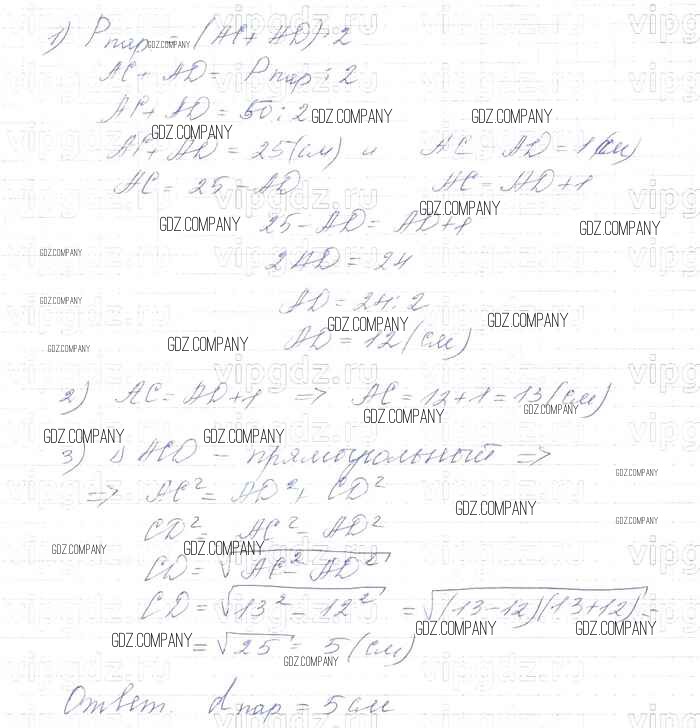 1) Pпар = (AC + AD) · 2
AC + AD = Pпар : 2
AC + AD = 50 : 2
AC + AD = 25 (см) и AC - AD = 1 (см)
AC = 25 - AD AC = AD + 1
25 - AD = AD + 1
2AD = 24
AD = 24 : 2
AD = 12 (см)
2) AC = AD + 1 => AC = 12 + 1 = 13 (см)
3) Δ ACD - прямоугольный =>
=> AC² = AD² + CD²
CD² = AC² - AD²
CD = √(AC² - AD²)
CD = √(13² - 12²) = √((13-12)(13+12)) =
= √25 = 5 (см)
Ответ. dпар = 5 см
GDZ.COMPANY
vipgdz.ru